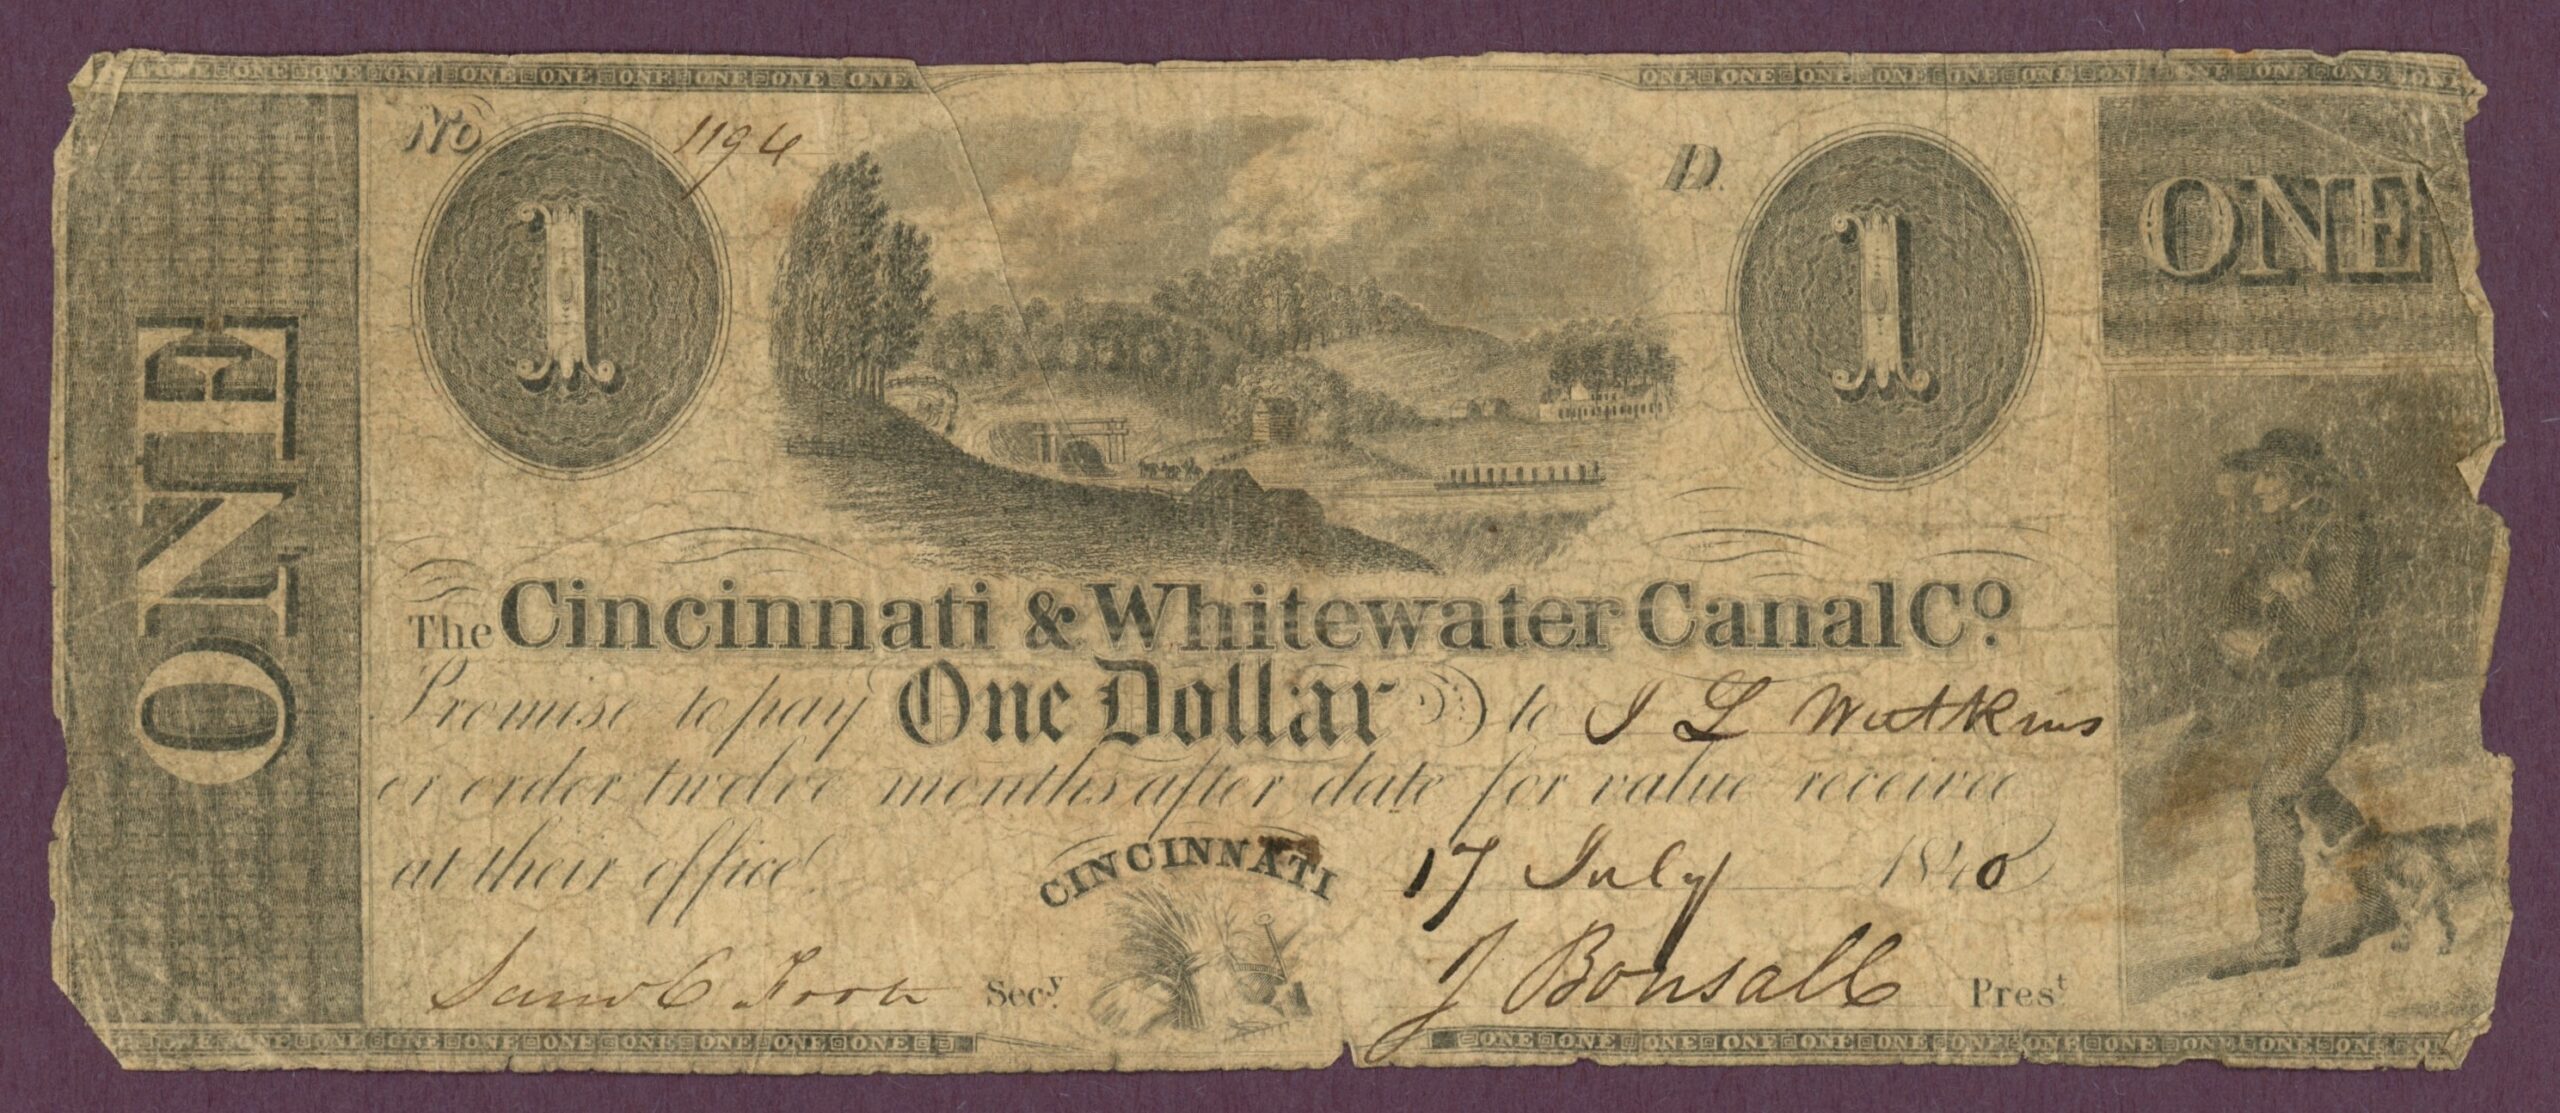 ONE ONE ONE ONE ONE ONE ONE ONE ONE ONE
ONE ONE ONE ONE ONE ONE ONE ONE ONE ONE
No 1194
D.
1
1
ONE
ONE
The Cincinnati & Whitewater Canal Co.
Promise to pay One Dollar to J L Watkins
or order twelve months after date for value received
at their office.
CINCINNATI
17 July 1840
Saml C Foot Secy.
J Bonsall Prest
ONE ONE ONE ONE ONE ONE ONE ONE ONE
ONE ONE ONE ONE ONE ONE ONE ONE ONE ONE ONE ONE